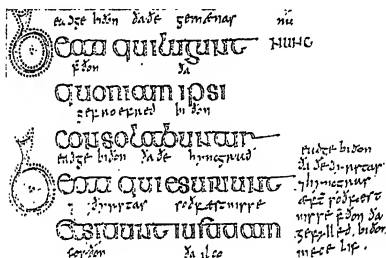 eadge biðon ða ðe gemænas nu
Beati qui lugunt nunc
f'ðon ða
quoniam ipsi
gefroefred biðon
consolabuntur
eadge biðon ða ðe hyncgrað
Beati qui esuriunt
⁊ ðyrstas soðfæstnisse
et sitiunt iustitiam
forðon ða ilco
eadge biðon
ða ðe ðyrstas
⁊ hyncgras
æft' soðfæst
nisse f'ðon ða
gefylled biðon
in ece lif.